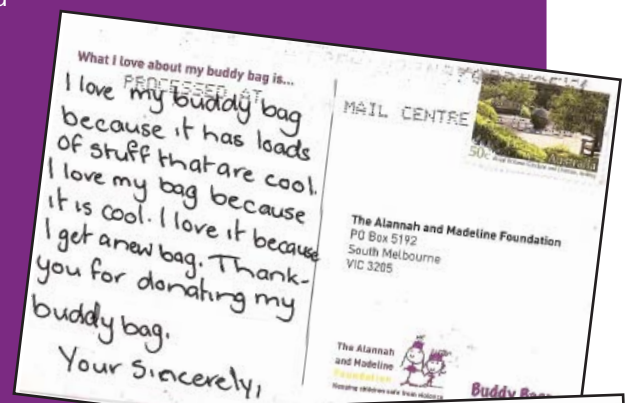 What I love about my buddy bag is...
PROCESSED AT
I love my buddy bag
because it has loads
of stuff that are cool.
I love my bag because
it is cool. I love it because
I get a new bag. Thank-
you for donating my
buddy bag.
Your Sincerely,
MAIL CENTRE
50c
Australia
The Alannah and Madeline Foundation
PO Box 5192
South Melbourne
VIC 3205
The Alannah
and Madeline
Foundation
Keeping children safe from violence
Buddy